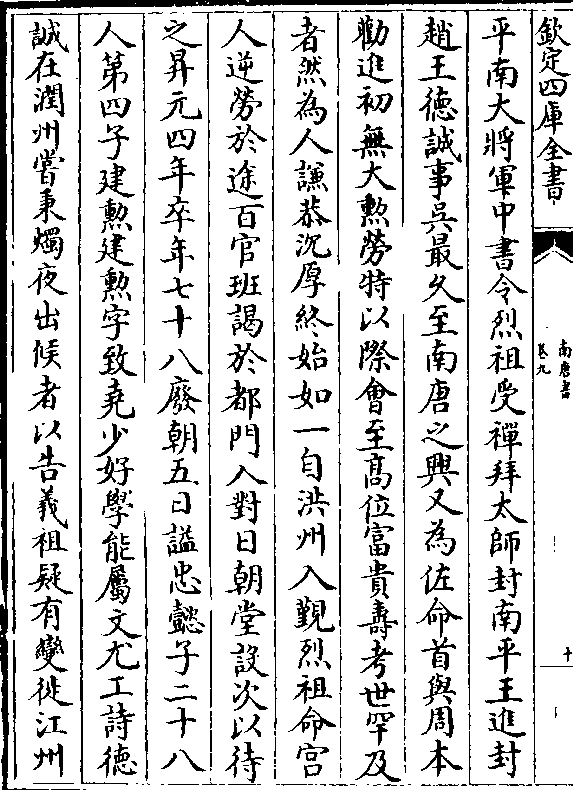 欽定四庫全書
南唐書
卷九
十
平南大將軍中書令烈祖受禪拜太師封南平王進封
趙王德誠事吳最久至南唐之興又為佐命首與周本
勸進初無大勲勞特以際會至髙位富貴壽考世罕及
者然為人謙恭沉厚終始如一自洪州入覲烈祖命宫
人逆勞於途百官班謁於都門入對日朝堂設次以待
之昇元四年卒年七十八廢朝五日諡忠懿子二十八
人第四子建勲建勲字致堯少好學能屬文尤工詩德
誠在潤州嘗秉燭夜出候者以告義祖疑有變徙江州